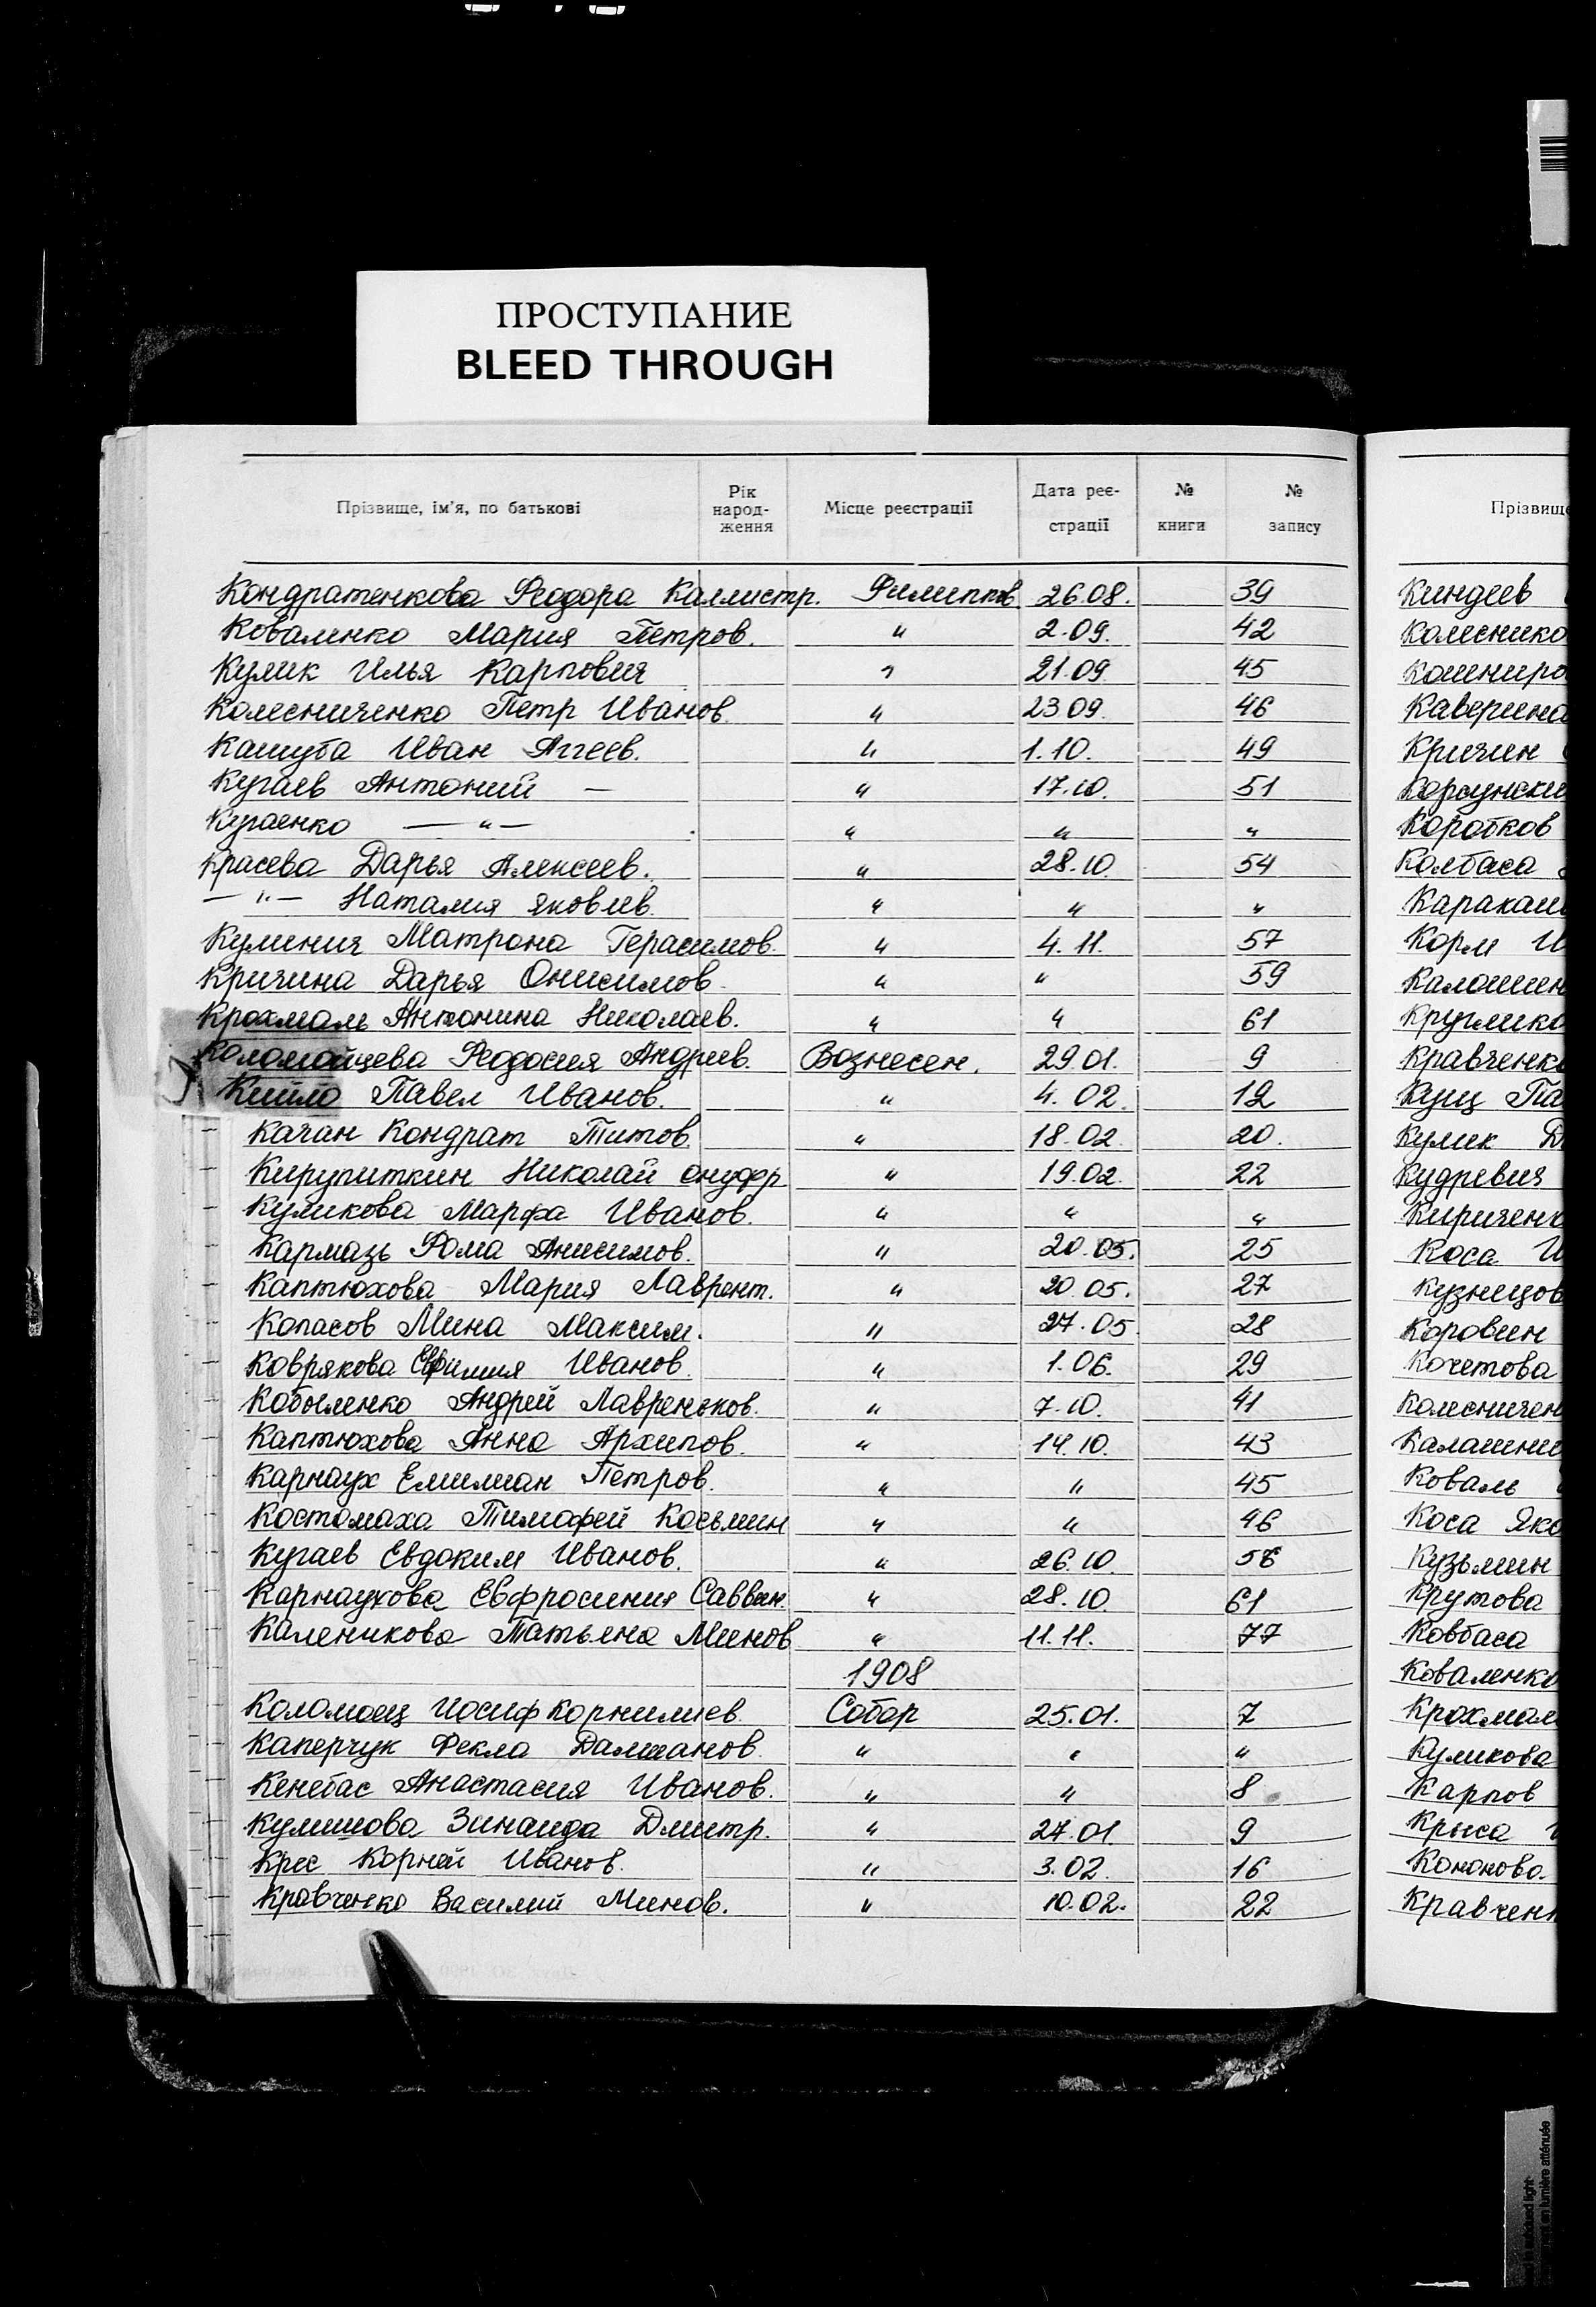 ПРОСТУПАНИЕ
BLEED THROUGH
Прізвище, ім'я, по батькові Рік народ-ження Місце реєстрації Дата реє-страції № книги № запису
Кондратенкова Феодора Каллистр. Филиппов 26.08. 39
Коваленко Мария Петров. " 2.09. 42
Кулик Илья Карпович " 21.09. 45
Колесниченко Петр Иванов. " 23 09. 46
Кашуба Иван Аггеев. " 1.10. 49
Кугаев Антоний — " 17.10. 51
Кугаенко — " — " " "
Красева Дарья Алексеев. " 28.10. 54
— " — Наталия Яковлев. " " "
Кулинич Матрона Герасимов. " 4.11. 57
Кричина Дарья Онисимов. " " 59
Крохмаль Антонина Николаев. " " 61
Коломойцева Феодосия Андреев. Вознесен. 29 01. 9
Павел Иванов. " 4.02. 12
Качан Кондрат Титов. " 18.02. 20.
Кирупиткин Николай Онуфр " 19.02. 22
Куликова Марфа Иванов. " " "
Кармазь Фома Анисимов. " 20.05. 25
Каптюхова Мария Лаврент. " 20 05. 27
Копасов Мина Максим. " 27.05. 28
Коврякова Ефимия Иванов. " 1.06. 29
Кобыленко Андрей " 7.10. 41
Каптюхова Анна Архипов. " 14.10. 43
Карнаух Емилиан Петров. " " 45
Костомаха Тимофей Косьмин " " 46
Кугаев Евдоким Иванов. " 26.10.
Карнаухова Евфросиния Саввин. " 28.10. 61
Каленикова Татьяна Минов " 11.11. 77
1908
Коломоец Иосиф Корнилиев. Собор 25.01. 7
Каперчук Фекла " " "
Кенебас Анастасия Иванов. " " 8
Кулишова Зинаида Дмитр. " 27.01. 9
Крес Корней Иванов. " 3.02. 16
Кравченко Василий Минов. " 10.02. 22
Прізвище
Киндеев
Колеснико
Кашниро
Каверина
Кричин
Корсунски
Коротков
Колбаса
Каракаш
Корм И
Калашин
Круглико
Кравченко
Кущ Па
Кулик
Кудревич
Кириченк
Коса И
Кузнецов
Коровин
Кочетова
Колесничен
Калашни
Коваль
Коса Яко
Кузьмин
Крутова
Ковбаса
Коваленко
Крохмал
Куликова
Карпов
Крыса
Кононова.
Кравчен